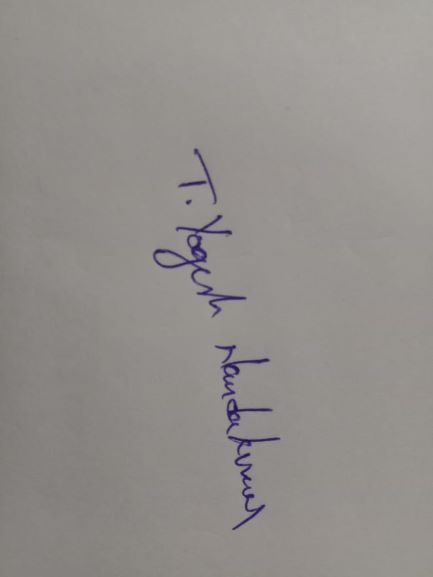 T. Yogesh Nandakumar